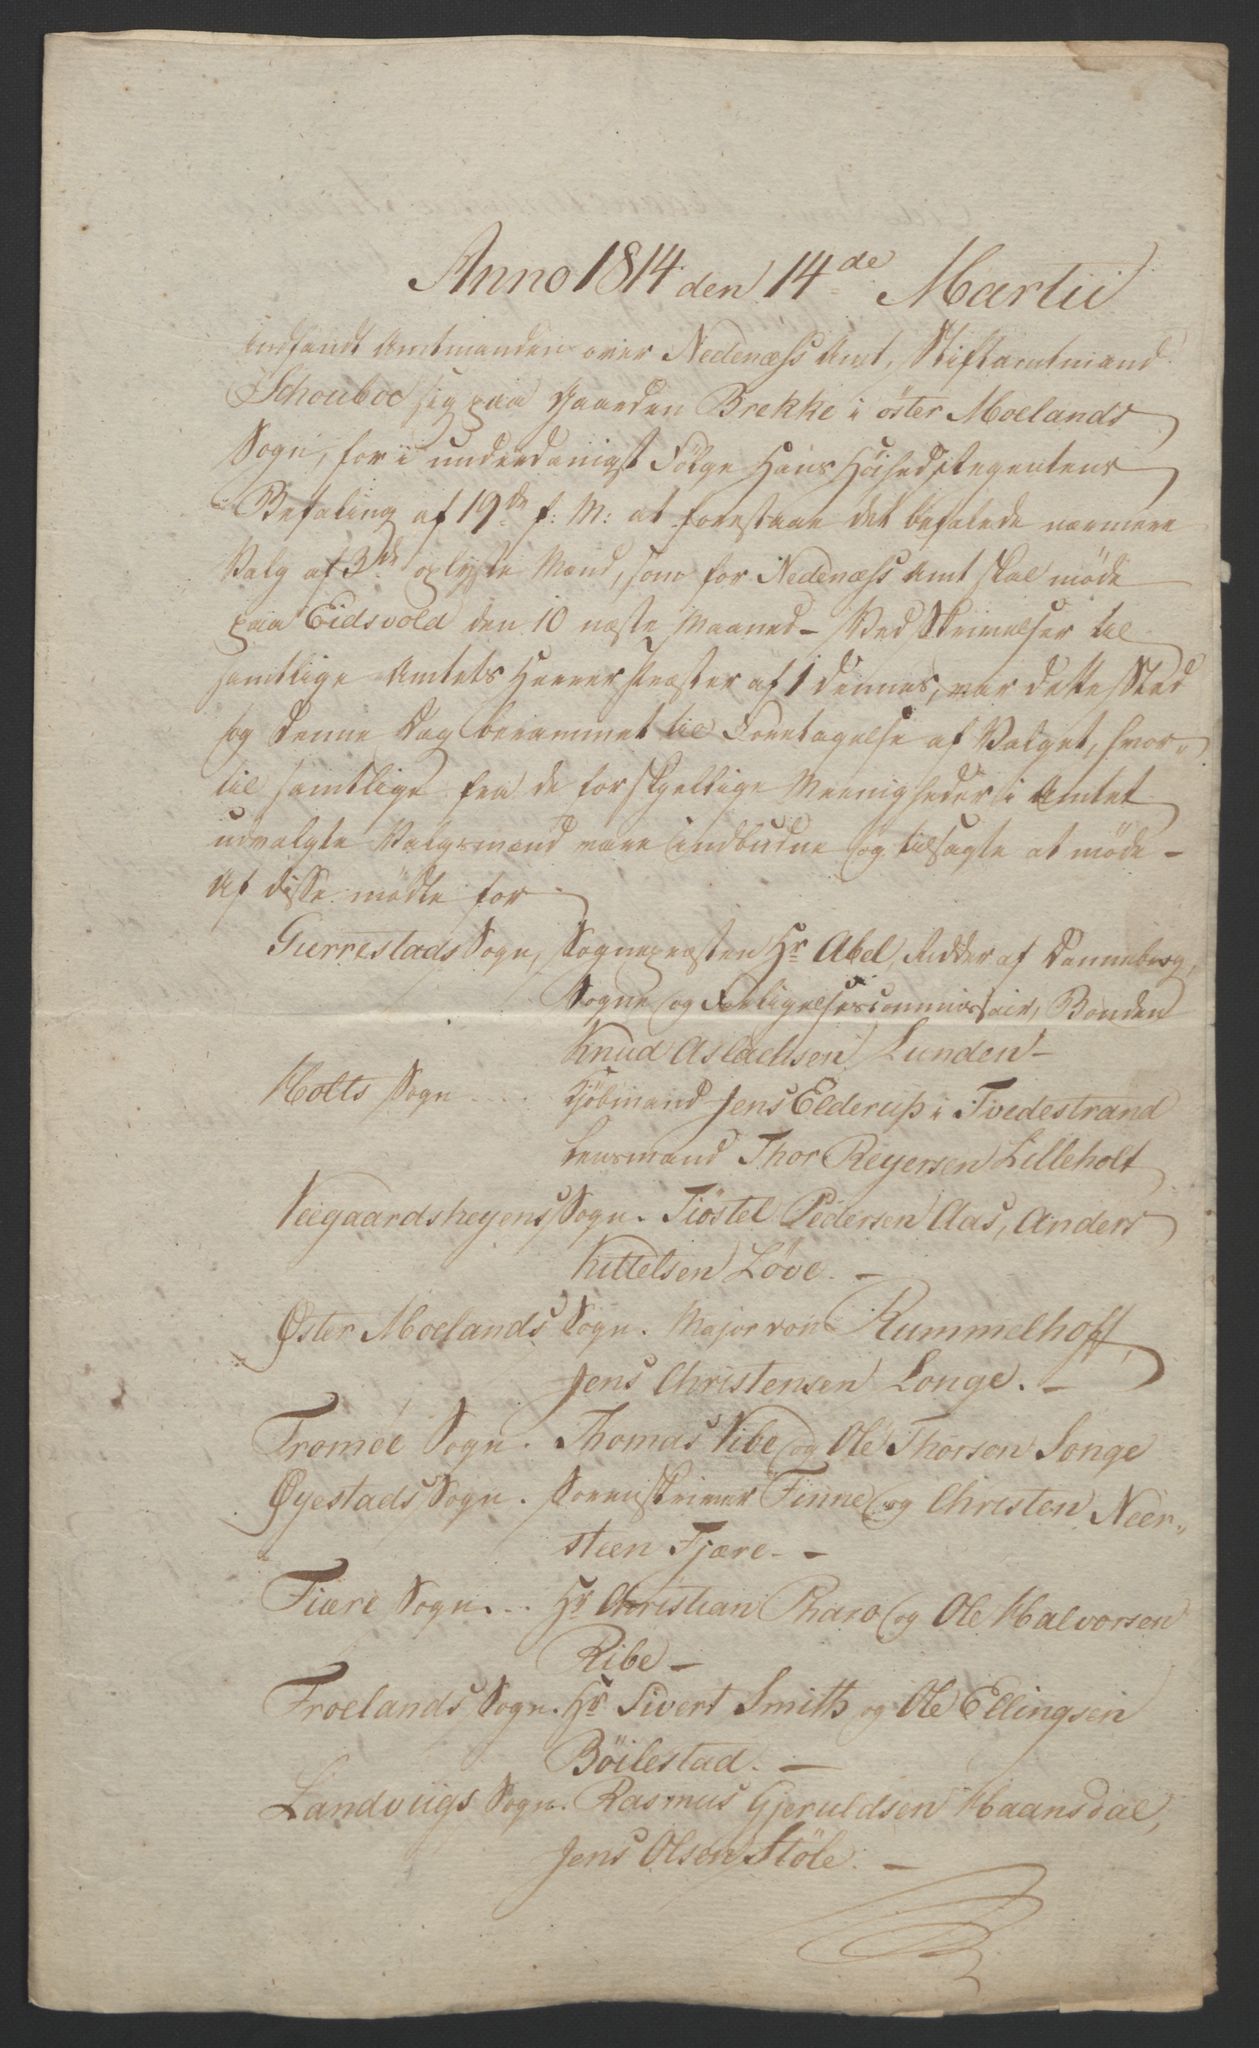 Anno 1814 den 14de Martii
indfandt Amtmanden over Nedenæss Amt, Stiftamtmand
Schouboe sig paa Gaarden Brekke i öster Moelands
Sogn, for i underdanigst Fölge Hans Höihed Regentens
Befaling af 19de f: M: at forestaae det befalede nærmere
Valg af 3de oplyste Mænd, som for Nedenæss Amt skal möde
paa Eidsvold den 10 næste Maaned - Ved Skrivelser til
samtlige Amtets Herrer Præster af 1 dennes, var dette Sted
og denne Dag berammet til Foretagelse af Valget, hvor-
til samtlige fra de forskjellige Meenigheder i Amtet
udvalgte Valgmænd vare indbudne og tilsagte at möde -
Af disse mödte for
Gierrestads Sogn, Sognepræsten Hr Abel, Ridder af Dannebrog,
Sogne og Forligelsescommissair, Bonden
Knud Aslachsen Lunden -
Holts Sogn .... Kjöbmand Jens Elderup i Tvedestrand
Lensmand Thor Reyersen Lilleholt
Veegaardsheyens Sogn. Tiöstel Pedersen Aas, Anders
Kittelsen Löve. -
Øster Moelands Sogn. Major von Rummelhoff,
Jens Christensen Longe. -
Tromöe Sogn. Thomas Vibe og Ole Thorsen Songe
Øyestads Sogn. Sorenskriver Finne og Christen Neer-
steen Fjære. -
Fiære Sogn... Hr Christian Pharo og Ole Halvorsen
Ribe -
Froelands Sogn. Hr Sivert Smith og Ole Ellingsen
Böilestad. -
Landviigs Sogn. Rasmus Gjeruldsen Haansdal,
Jens Olsen Stöle. -